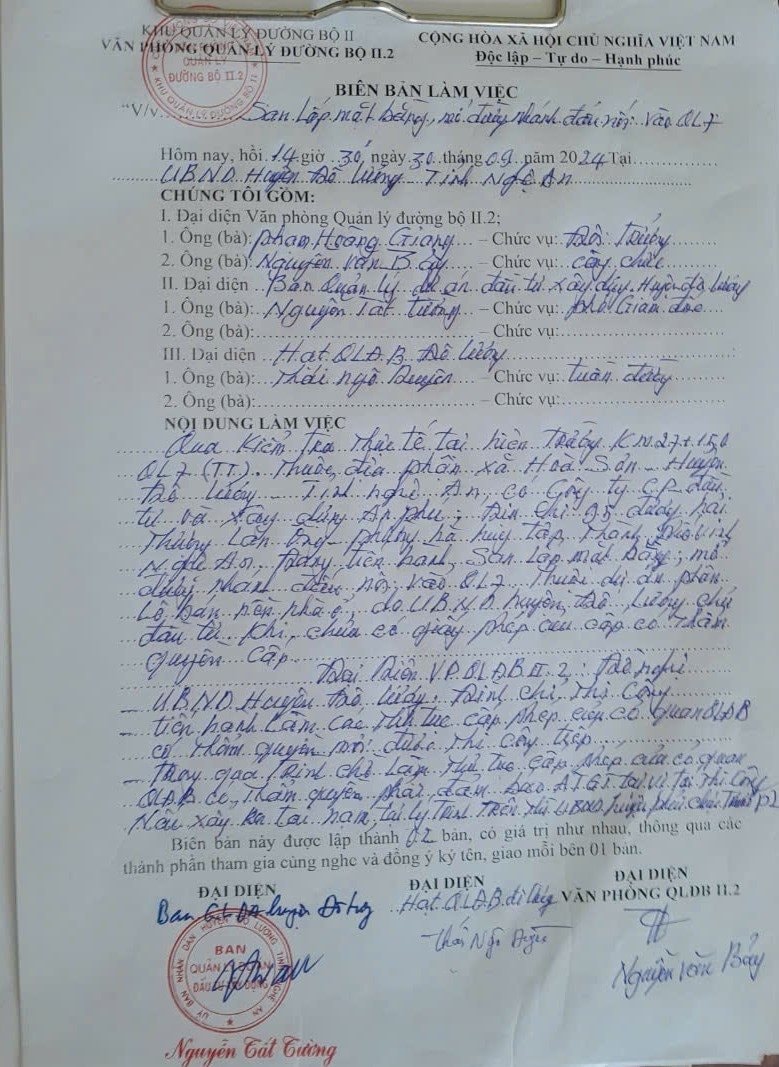 KHU QUẢN LÝ ĐƯỜNG BỘ II
VĂN PHÒNG QUẢN LÝ ĐƯỜNG BỘ II.2
CỘNG HÒA XÃ HỘI CHỦ NGHĨA VIỆT NAM
Độc lập – Tự do – Hạnh phúc
QUẢN LÝ
ĐƯỜNG BỘ II.2
KHU QUẢN LÝ ĐƯỜNG BỘ II
BIÊN BẢN LÀM VIỆC
"V/v San lấp mặt bằng, mở đường nhánh đấu nối vào QL7
Hôm nay, hồi 14 giờ 30, ngày 30 tháng 09 năm 2024 Tại
UBND Huyện Đô Lương - Tỉnh Nghệ An
CHÚNG TÔI GỒM:
I. Đại diện Văn phòng Quản lý đường bộ II.2;
1. Ông (bà): Phạm Hoàng Giang – Chức vụ: Đội Trưởng
2. Ông (bà): Nguyễn Văn Bảy – Chức vụ: công chức
II. Đại diện Ban Quản lý dự án đầu tư xây dựng Huyện Đô Lương
1. Ông (bà): Nguyễn Tất Tường – Chức vụ: phó Giám đốc
2. Ông (bà): – Chức vụ:
III. Đại diện Hạt QLĐB Đô Lương
1. Ông (bà): Thái Ngô – Chức vụ: tuần đường
2. Ông (bà): – Chức vụ:
NỘI DUNG LÀM VIỆC
Qua kiểm tra thực tế tại hiện trường KM27+150
QL7 (TT). Thuộc địa phận xã Hoà Sơn - Huyện
Đô Lương - Tỉnh Nghệ An, có Công ty CP đầu
tư và xây dựng An phú; Địa chỉ 95 đường hải
Thượng Lãn Ông - phường hà huy tập, Thành phố Vinh
Nghệ An. Đang tiến hành San lấp mặt bằng; mở
đường nhánh đấu nối vào QL7 Thuộc dự án phân
Lô bán nền nhà ở, do UBND huyện Đô Lương chủ
đầu tư. Khi chưa có giấy phép của cấp có thẩm
quyền cấp.
Đại Diện VPQLĐB II.2: Đề nghị
- UBND Huyện Đô Lương: Đình chỉ Thi Công
- tiến hành làm các thủ tục cấp phép của cơ quan QLĐB
có thẩm quyền mới được thi công tiếp
- Thời gian Đình chỉ làm thủ tục cấp phép của cơ quan
QLĐB có thẩm quyền phải đảm bảo ATGT tại vị trí Thi Công
Nếu xảy ra tai nạn, tại lý Trình Trên thì UBND huyện phải chịu
Biên bản này được lập thành 02 bản, có giá trị như nhau, thông qua các
thành phần tham gia cùng nghe và đồng ý ký tên, giao mỗi bên 01 bản.
ĐẠI DIỆN
ĐẠI DIỆN
ĐẠI DIỆN
VĂN PHÒNG QLĐB II.2
Ban QLDA huyện Đô Lương
Hạt QLĐB
Thái Ngô
Nguyễn Văn Bảy
BAN
QUẢN LÝ DỰ ÁN
ĐẦU TƯ XÂY DỰNG
ỦY BAN NHÂN DÂN HUYỆN ĐÔ LƯƠNG TỈNH NGHỆ AN
Nguyễn Tất Tường